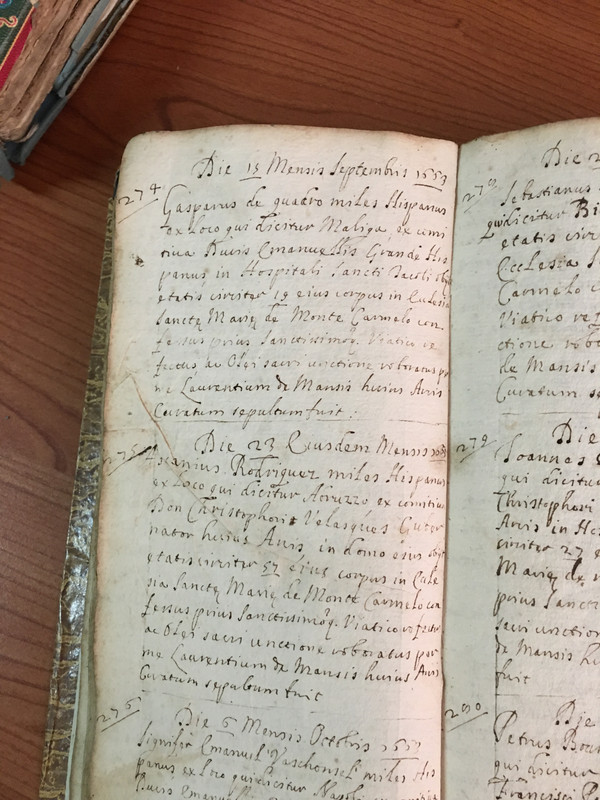 Die 15 Mensis Septembris 1653
274
Gasparus de quadro miles Hispanus
ex Loco qui dicitur Maliga ex comi
tiua Ducis Emanuellis Grande His
panus in Hospitali Sancti Iacobi obijt
etatis circiter 19 eius corpus in Eclesia
Sanctę Marię de Monte Carmelo con
fessus prius Sanctissimoq. Viatico re
fectus ac Olei sacri unctione roboratus per
me Laurentium de Mansis huius Arcis
Curatum sepultum fuit :
Die 23 Eiusdem Mensis 1653
275
Ascanius Rodriquez miles Hispanus
ex Loco qui dicitur Abruzzo ex comitiua
Don Christophori Velasques Guber
nator huius Arcis in domo eius obijt
etatis circiter 57 eius corpus in Ecle
sia Sanctę Marię de Monte Carmelo con
fessus prius Sanctissimoq. Viatico refectus
ac Olei sacri unctione roboratus per
me Laurentium de Mansis huius Arcis
Curatum sepultum fuit
276
Die 6 Mensis Octobris 1653
Signifer Emanuel miles His
panus ex Loco qui dicitur Napoli
Ducis
Die 2
Sebastianus
qui dicitur
etatis circi
Ecclesia S
Carmelo
Viatico ref
ctione robo
de Mansis
Curatum se
279
Die
Ioannes
qui dicitur
Christophori
Arcis in
circiter 27
Marię de
prius Sanct
sacri unction
de Mansis hu
fuit
280
Die
Petrus
qui dicitur
Francisci